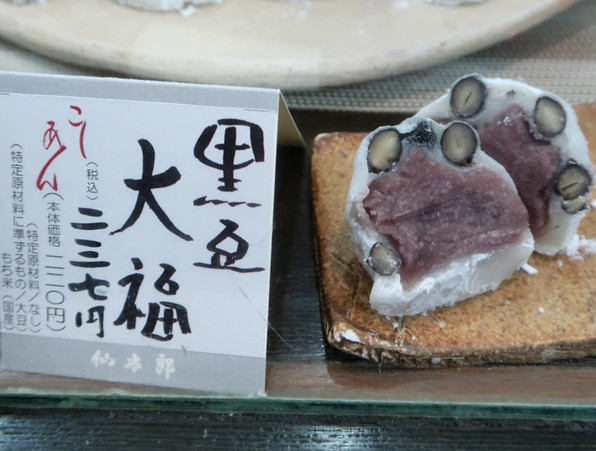 黒豆
大福
こしあん
(税込)
二三七円
(本体価格 二二〇円)
(特定原材料/なし)
(特定原材料に準ずるもの/大豆)
もち米(国産)
仙太郎